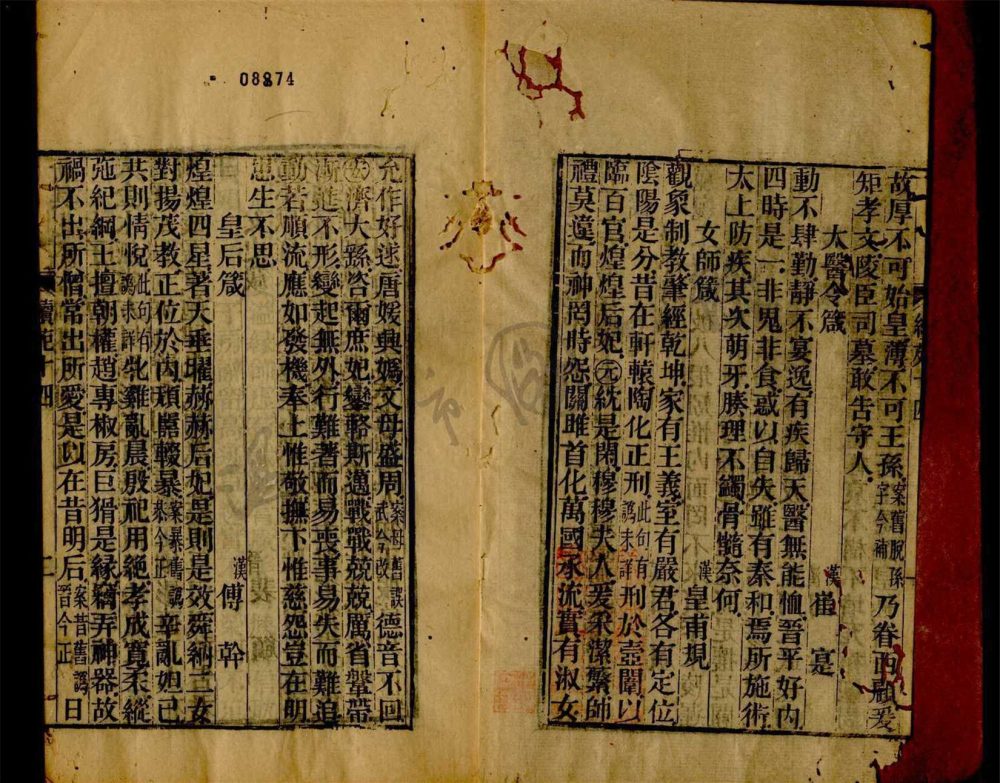 08874
故厚不可始皇薄不可王孫案舊脫孫字今補乃眷西顧爰
矩孝文陵臣司墓敢告守人
太醫令箴 漢 崔寔
動不肆勤靜不宴逸有疾歸天醫無能恤晉平好內
四時是一非鬼非食惑以自失雖有秦和焉所施術
太上防疾其次萌牙腠理不蠲骨髓奈何
女師箴 漢 皇甫規
觀象制教肇經乾坤家有王義室有嚴君各有定位
陰陽是分昔在軒轅陶化正刑此句有譌未詳刑於壼闈以
臨百官煌煌后妃元統是閑穆穆夫人爰采潔繁師
禮莫違而神罔時怨關雎首化萬國承流實有淑女
允作好逑唐媛興媯文母盛周案母舊誤武今改德音不回
弘濟大繇咨爾庶妃鑾輅斯邁戰戰兢兢厲省鞶帶
漸進不形變起無外行難著而易喪事易失而難追
動若順流應如發機奉上惟敬撫下惟慈怨豈在明
患生不思
皇后箴 漢 傅幹
煌煌四星著天垂曜赫赫后妃是則是效舜納二女
對揚茂教正位於內頑嚚輟暴案暴舊譌恭今正辛亂妲己
共則情悅此句有譌未詳牝雞亂晨殷祀用絕孝成寬柔縱
弛紀綱王擅朝權趙專椒房巨猾是緣竊弄神器故
禍不出所憎常出所愛是以在昔明后案昔舊譌晉今正日
續苑十四
二